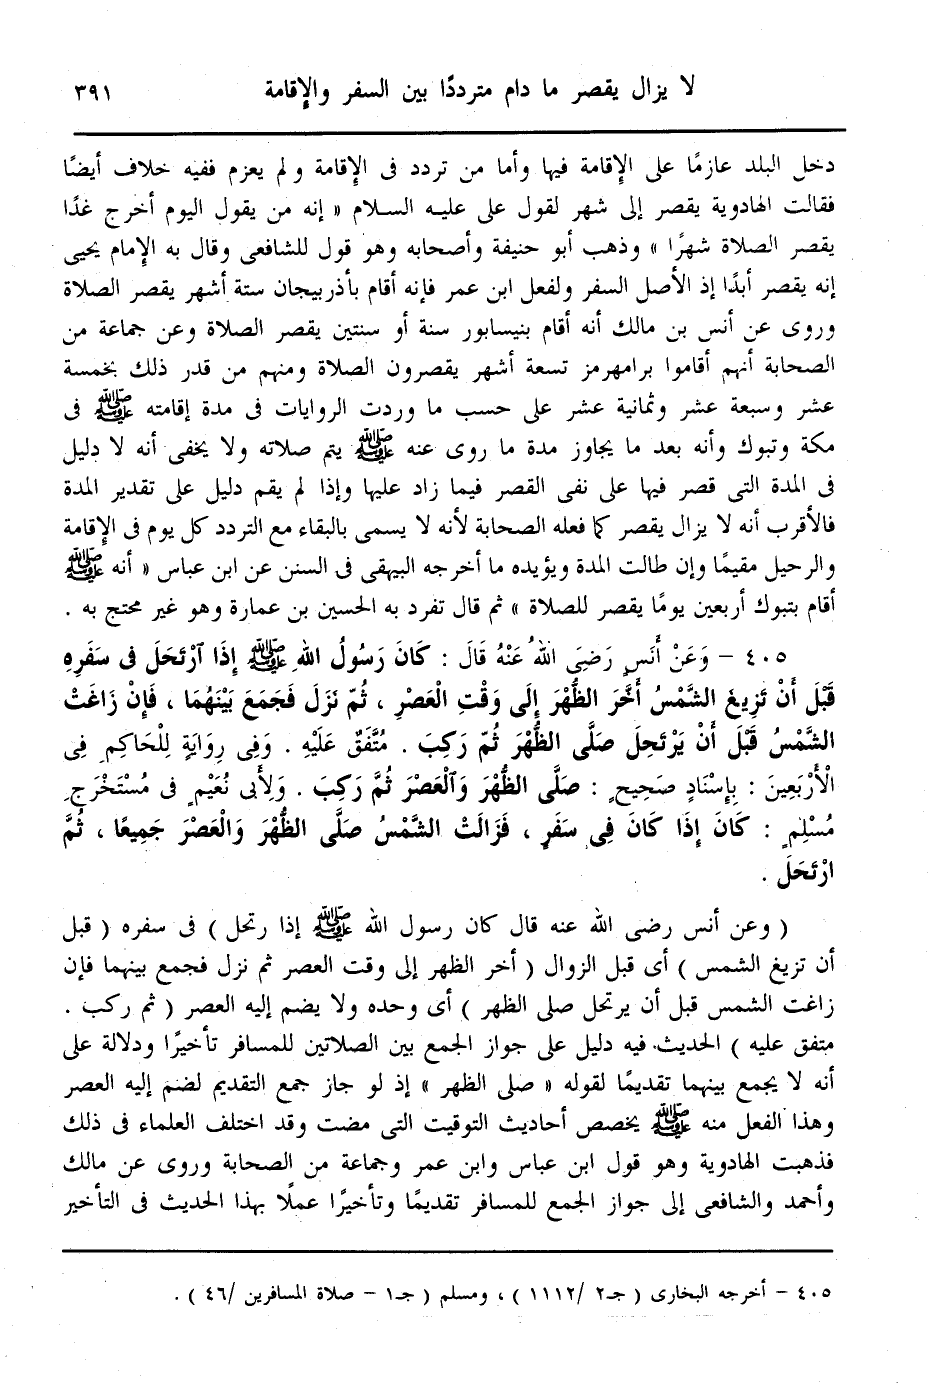 لا يزال يقصر ما دام مترددًا بين السفر والإقامة ٣٩١
دخل البلد عازمًا على الإقامة فيها وأما من تردد فى الإقامة ولم يعزم ففيه خلاف أيضًا
فقالت الهادوية يقصر إلى شهر لقول على عليه السلام « إنه من يقول اليوم أخرج غدًا
يقصر الصلاة شهرًا » وذهب أبو حنيفة وأصحابه وهو قول للشافعى وقال به الإمام يحيى
إنه يقصر أبدًا إذ الأصل السفر ولفعل ابن عمر فإنه أقام بأذربيجان ستة أشهر يقصر الصلاة
وروى عن أنس بن مالك أنه أقام بنيسابور سنة أو سنتين يقصر الصلاة وعن جماعة من
الصحابة أنهم أقاموا برامهرمز تسعة أشهر يقصرون الصلاة ومنهم من قدر ذلك بخمسة
عشر وسبعة عشر وثمانية عشر على حسب ما وردت الروايات فى مدة إقامته ﷺ فى
مكة وتبوك وأنه بعد ما يجاوز مدة ما روى عنه ﷺ يتم صلاته ولا يخفى أنه لا دليل
فى المدة التى قصر فيها على نفى القصر فيما زاد عليها وإذا لم يقم دليل على تقدير المدة
فالأقرب أنه لا يزال يقصر كما فعله الصحابة لأنه لا يسمى بالبقاء مع التردد كل يوم فى الإقامة
والرحيل مقيمًا وإن طالت المدة ويؤيده ما أخرجه البيهقى فى السنن عن ابن عباس « أنه ﷺ
أقام بتبوك أربعين يومًا يقصر للصلاة » ثم قال تفرد به الحسين بن عمارة وهو غير محتج به .
٤٠٥ - وَعَنْ أَنَسٍ رَضِىَ اللهُ عَنْهُ قَالَ : كَانَ رَسُولُ اللهِ ﷺ إِذَا ٱرْتَحَلَ فى سَفَرِهِ
قَبْلَ أَنْ تَزِيغَ الشَّمْسُ أَخَّرَ الظُّهْرَ إِلَى وَقْتِ الْعَصْرِ ، ثُمّ نَزَلَ فَجَمَعَ بَيْنَهُمَا ، فَإِنْ زَاغَتْ
الشَّمْسُ قَبْلَ أَنْ يَرْتَحِلَ صَلَّى الظُّهْرَ ثُمّ رَكِبَ . مُتَّفَقٌ عَلَيْهِ . وَفِى رِوَايَةٍ لِلْحَاكِمِ فِى
الْأَرْبَعِينَ : بِإِسْنَادٍ صَحِيحٍ : صَلَّى الظُّهْرَ وَٱلْعَصْرَ ثُمَّ رَكِبَ . وَلِأَبى نُعَيْمٍ فى مُسْتَخْرَجِ
مُسْلِمٍ : كَانَ إِذَا كَانَ فِى سَفَرٍ ، فَزَالَتْ الشَّمْسُ صَلَّى الظُّهْرَ وَالْعَصْرَ جَمِيعًا ، ثُمَّ
ارْتَحَلَ .
( وعن أنس رضى الله عنه قال كان رسول الله ﷺ إذا رتحل ) فى سفره ( قبل
أن تزيغ الشمس ) أى قبل الزوال ( أخر الظهر إلى وقت العصر ثم نزل فجمع بينهما فإن
زاغت الشمس قبل أن يرتحل صلى الظهر ) أى وحده ولا يضم إليه العصر ( ثم ركب .
متفق عليه ) الحديث فيه دليل على جواز الجمع بين الصلاتين للمسافر تأخيرًا ودلالة على
أنه لا يجمع بينهما تقديمًا لقوله « صلى الظهر » إذ لو جاز جمع التقديم لضم إليه العصر
وهذا الفعل منه ﷺ يخصص أحاديث التوقيت التى مضت وقد اختلف العلماء فى ذلك
فذهبت الهادوية وهو قول ابن عباس وابن عمر وجماعة من الصحابة وروى عن مالك
وأحمد والشافعى إلى جواز الجمع للمسافر تقديمًا وتأخيرًا عملًا بهذا الحديث فى التأخير
٤٠٥ - أخرجه البخارى ( جـ٢ /١١١٢ ) ، ومسلم ( جـ١ - صلاة المسافرين /٤٦ ) .